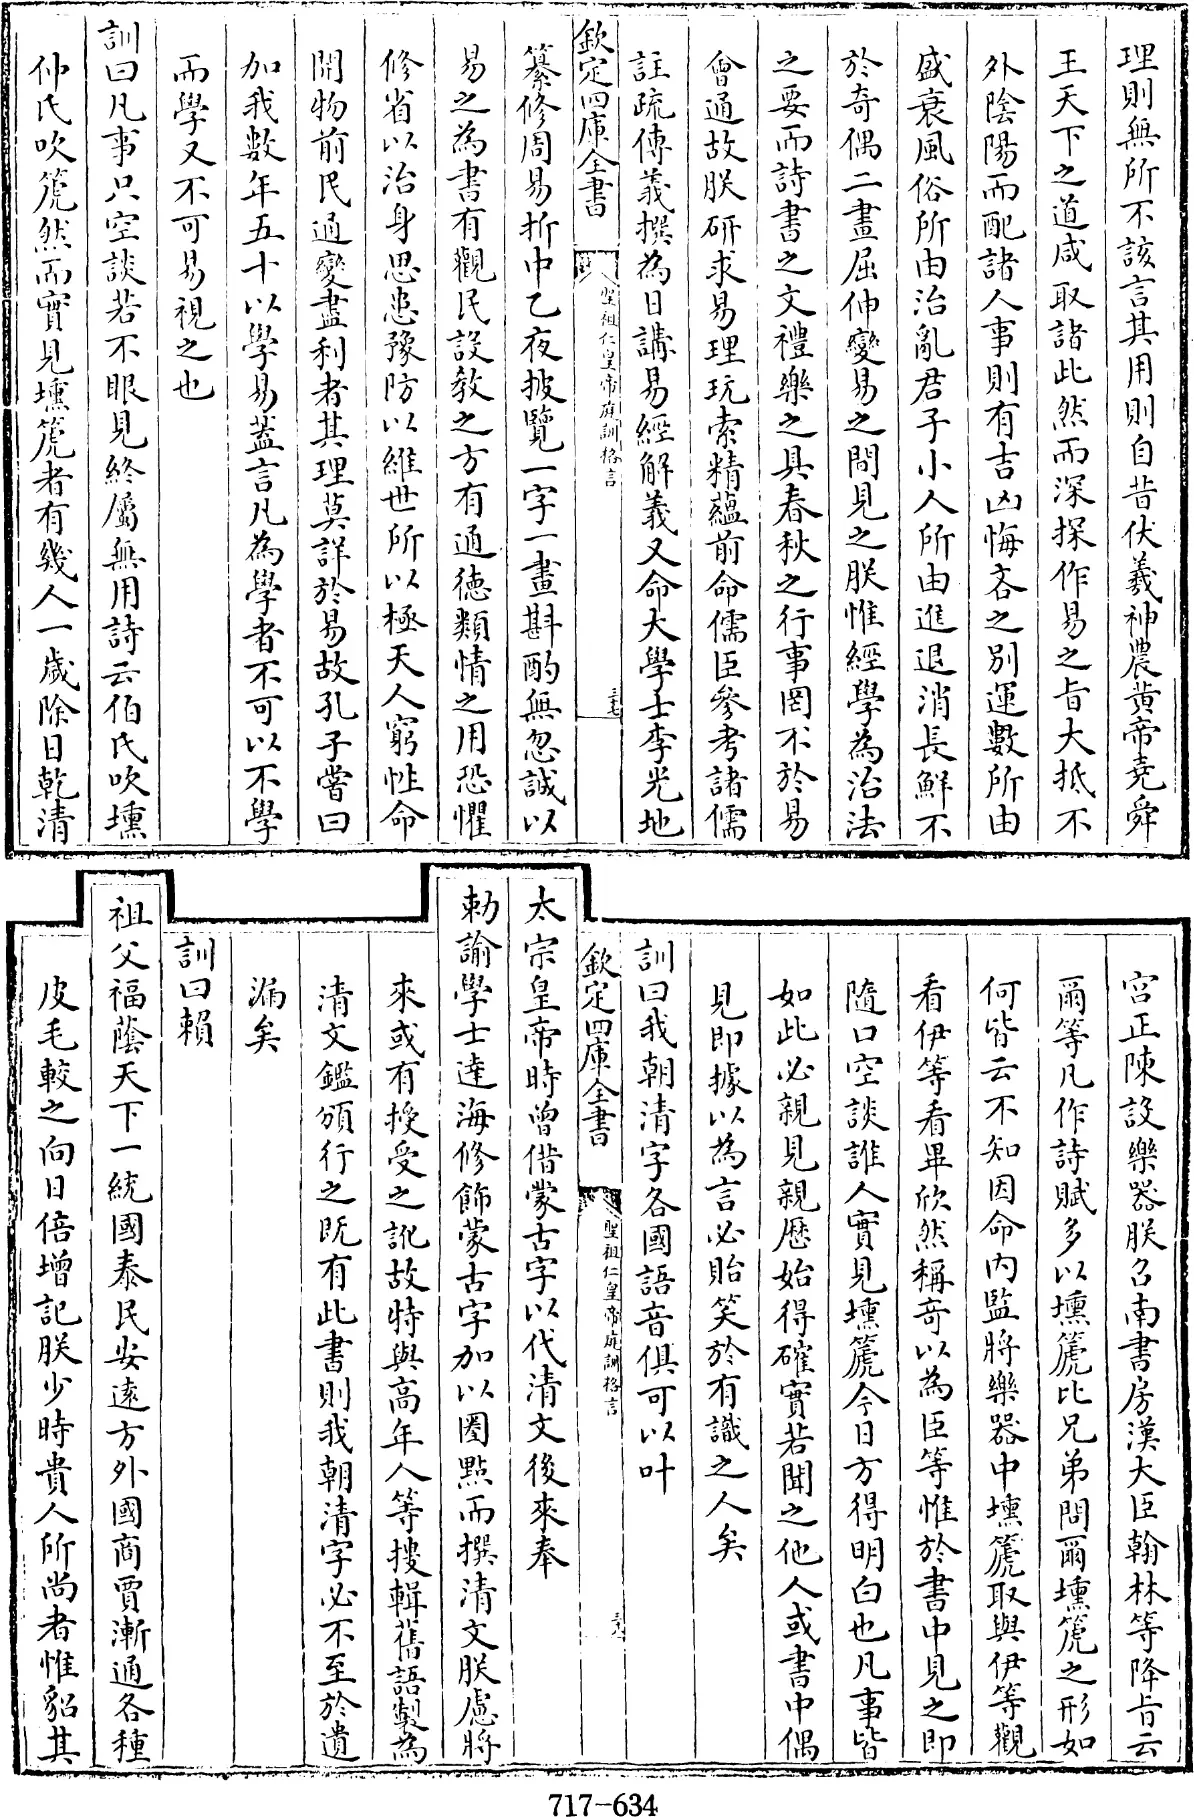 理則無所不該言其用則自昔伏羲神農黄帝堯舜
王天下之道咸取諸此然而深探作易之旨大抵不
外陰陽而配諸人事則有吉凶悔吝之别運數所由
盛衰風俗所由治亂君子小人所由進退消長鮮不
於奇偶二畫屈伸變易之間見之朕惟經學為治法
之要而詩書之文禮樂之具春秋之行事罔不於易
會通故朕研求易理玩索精藴前命儒臣參考諸儒
註疏傳義撰為日講易經解義又命大學士李光地
欽定四庫全書
聖祖仁皇帝庭訓格言
三七
纂修周易折中乙夜披覽一字一畫斟酌無忽誠以
易之為書有觀民設教之方有通德類情之用恐懼
修省以治身思患豫防以維世所以極天人窮性命
開物前民通變盡利者其理莫詳於易故孔子嘗曰
加我數年五十以學易蓋言凡為學者不可以不學
而學又不可易視之也
訓曰凡事只空談若不眼見終屬無用詩云伯氏吹壎
仲氏吹篪然而實見壎篪者有幾人一歲除日乾清
宫正陳設樂器朕召南書房漢大臣翰林等降旨云
爾等凡作詩賦多以壎篪比兄弟問爾壎篪之形如
何皆云不知因命内監將樂器中壎篪取與伊等觀
看伊等看畢欣然稱奇以為臣等惟於書中見之即
隨口空談誰人實見壎篪今日方得明白也凡事皆
如此必親見親歷始得確實若聞之他人或書中偶
見即據以為言必貽笑於有識之人矣
訓曰我朝清字各國語音俱可以叶
欽定四庫全書
聖祖仁皇帝庭訓格言
三八
太宗皇帝時曾借蒙古字以代清文後來奉
勅諭學士達海修飾蒙古字加以圏點而撰清文朕慮將
來或有授受之訛故特與高年人等搜輯舊語製為
清文鑑頒行之既有此書則我朝清字必不至於遺
漏矣
訓曰賴
祖父福蔭天下一統國泰民安遠方外國商賈漸通各種
皮毛較之向日倍增記朕少時貴人所尚者惟貂其
717-634